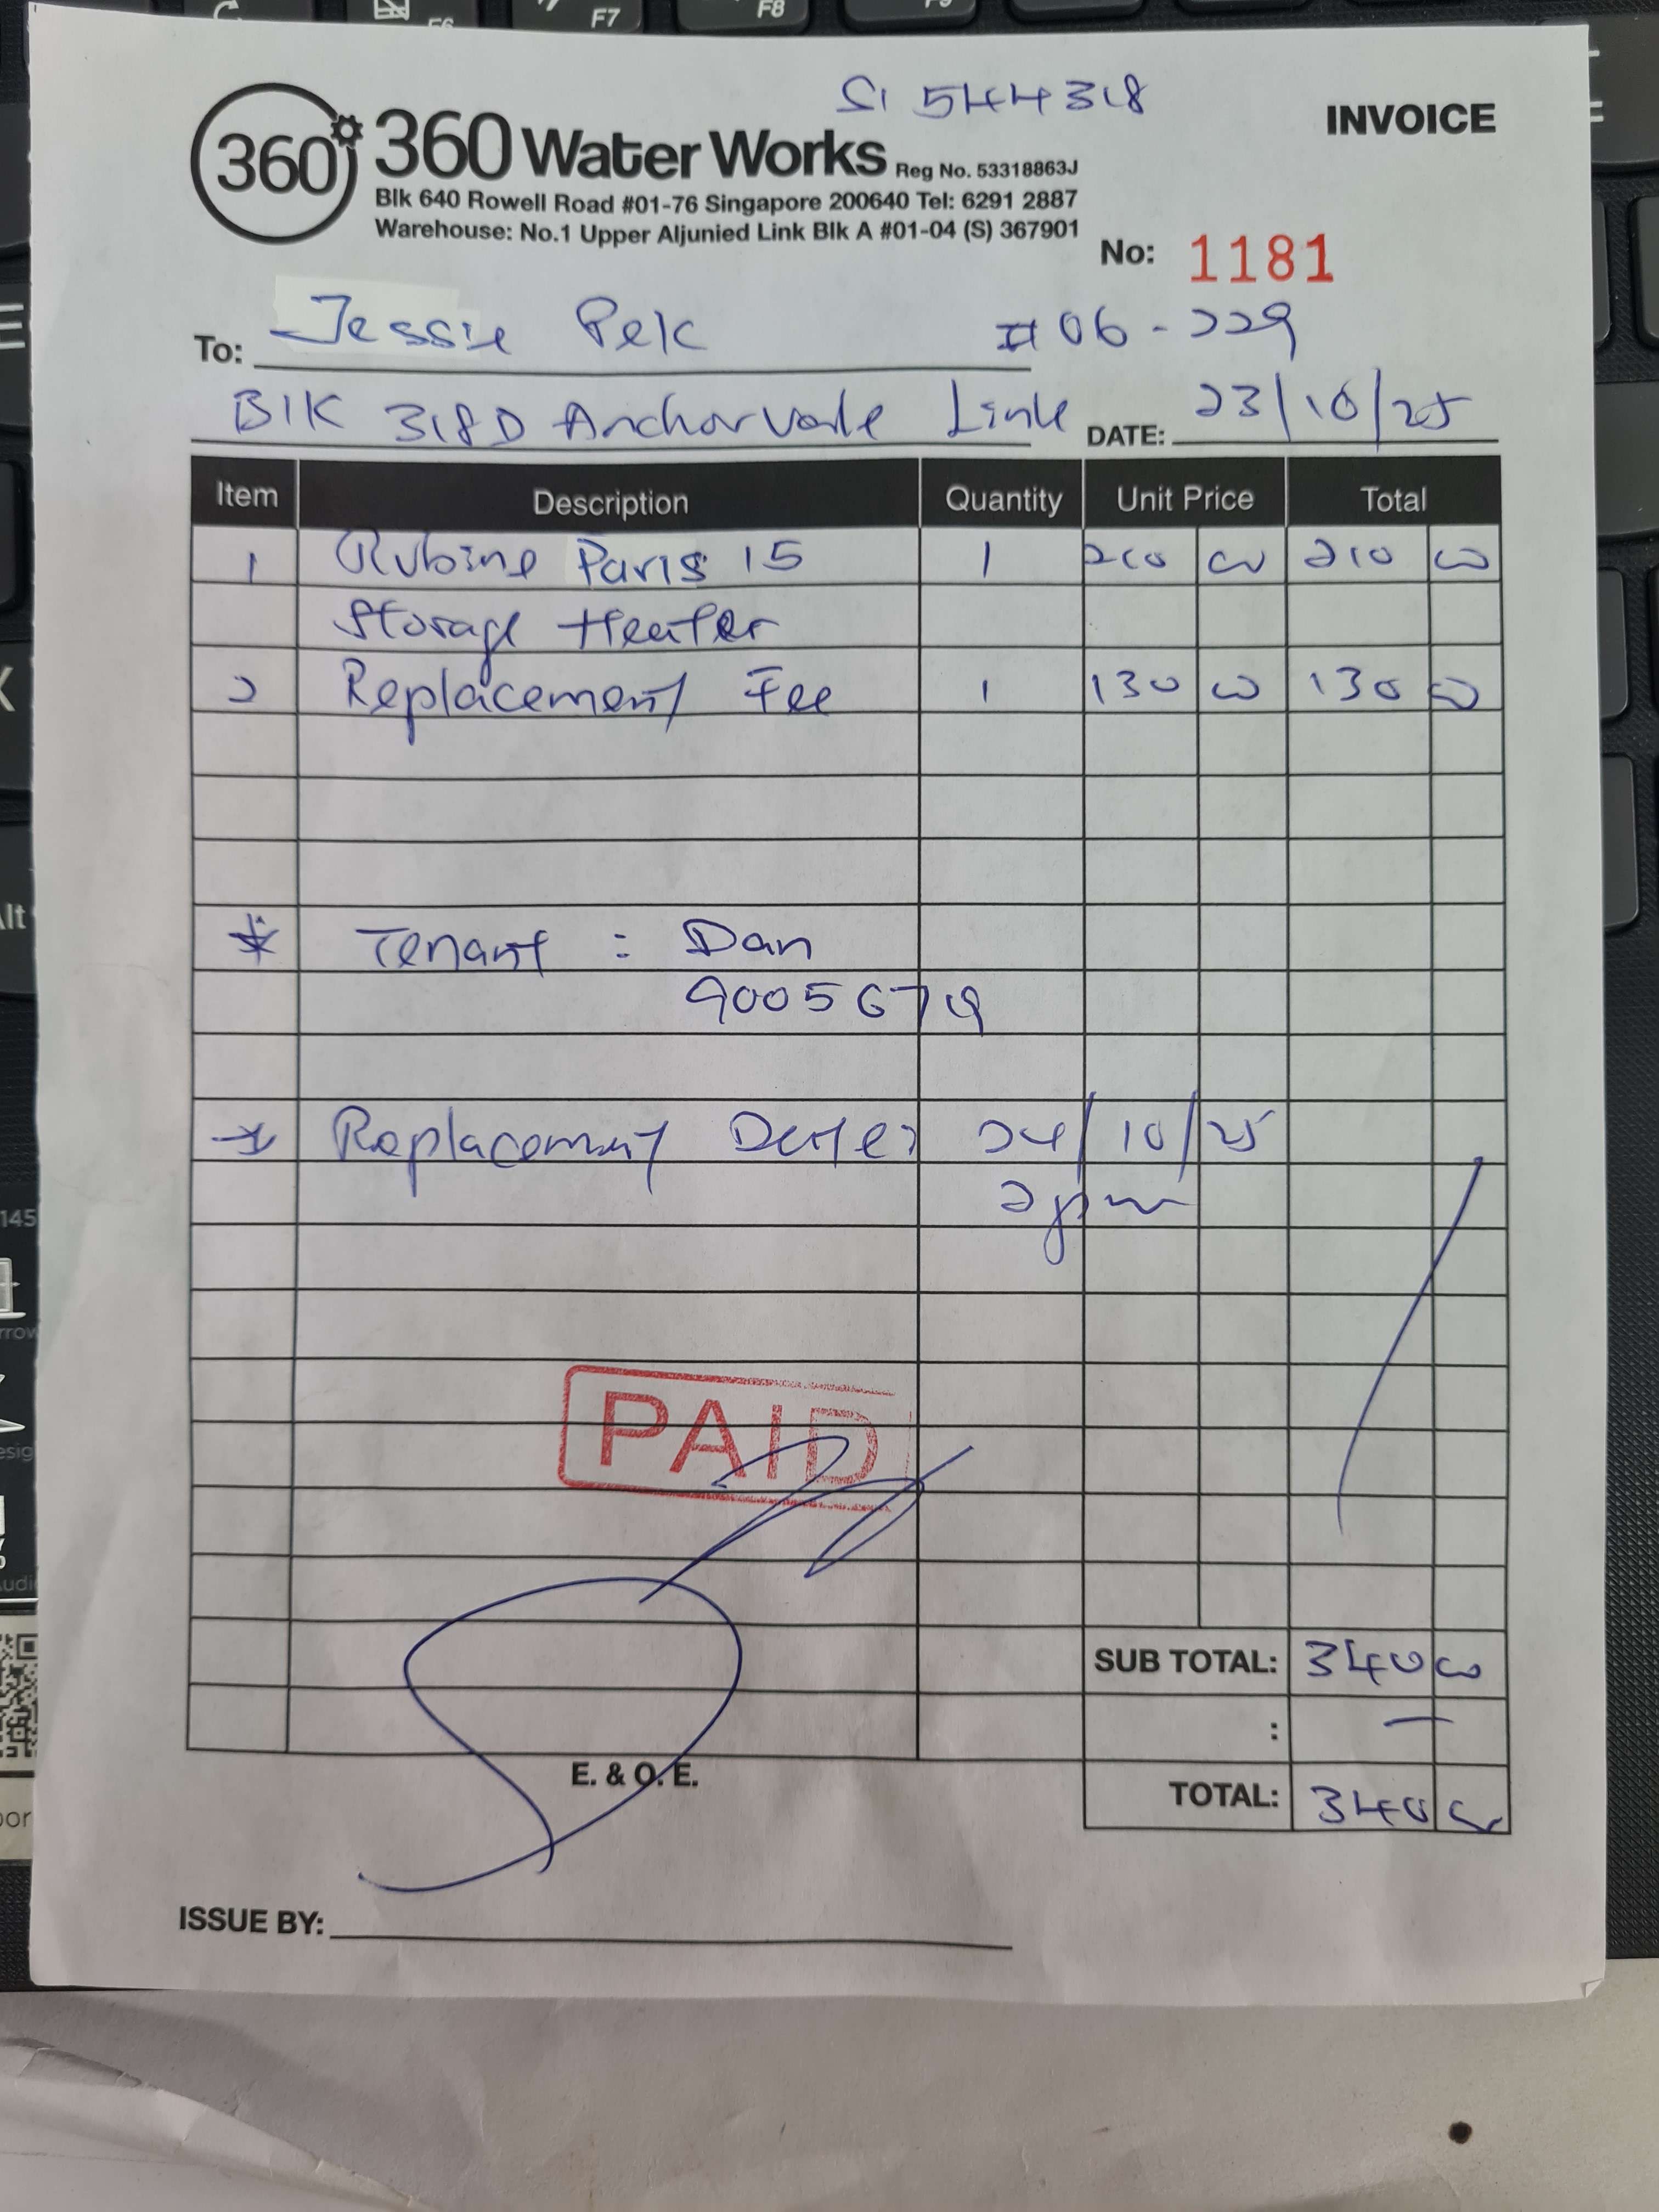 S1 544318
INVOICE
360
360 Water Works Reg No. 53318863J
Blk 640 Rowell Road #01-76 Singapore 200640 Tel: 6291 2887
Warehouse: No.1 Upper Aljunied Link Blk A #01-04 (S) 367901
No: 1181
To: Jessie Pek #06-229
Blk 318D Anchorvale Link DATE: 23/10/25
Item Description Quantity Unit Price Total
1 Rubine Paris 15 1 210 00 210 00
Storage Heater
2 Replacement Fee 1 130 00 130 00
* Tenant : Dan
90056719
* Replacement Date: 24/10/25
2pm
PAID
SUB TOTAL: 340 00
: —
E. & O. E.
TOTAL: 340 00
ISSUE BY:
F6 F7 F8
Alt
145